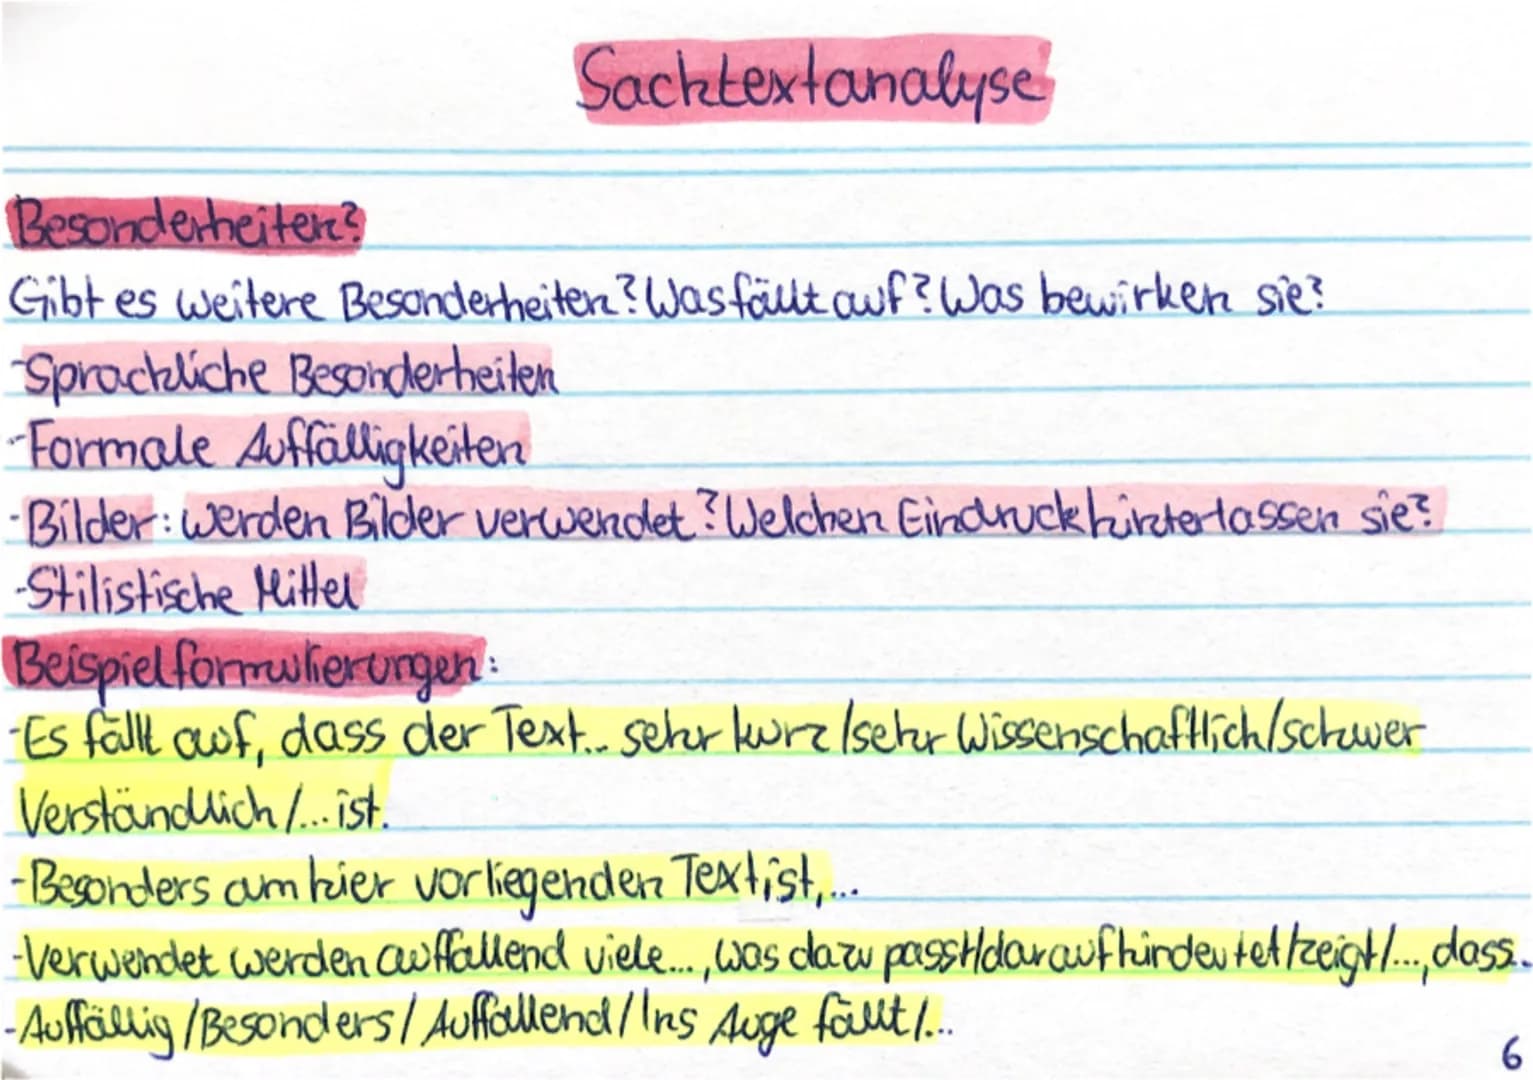 Sachtextanalyse
Besonderheiten?
Gibt es weitere Besonderheiten? Was fällt auf? Was bewirken sie?
-Sprachliche Besonderheiten
-Formale Auffälligkeiten
-Bilder: werden Bilder verwendet? Welchen Eindruck hinterlassen sie?
-Stilistische Mittel
Beispielformulierungen:
-Es fällt auf, dass der Text... sehr kurz/sehr Wissenschaftlich/schwer
Verständlich/... ist.
-Besonders am hier vorliegenden Text ist,...
-Verwendet werden auffallend viele..., was dazu passt/darauf hindeutet/zeigt/..., dass..
-Auffällig/Besonders/Auffallend/Ins Auge fällt/...
6